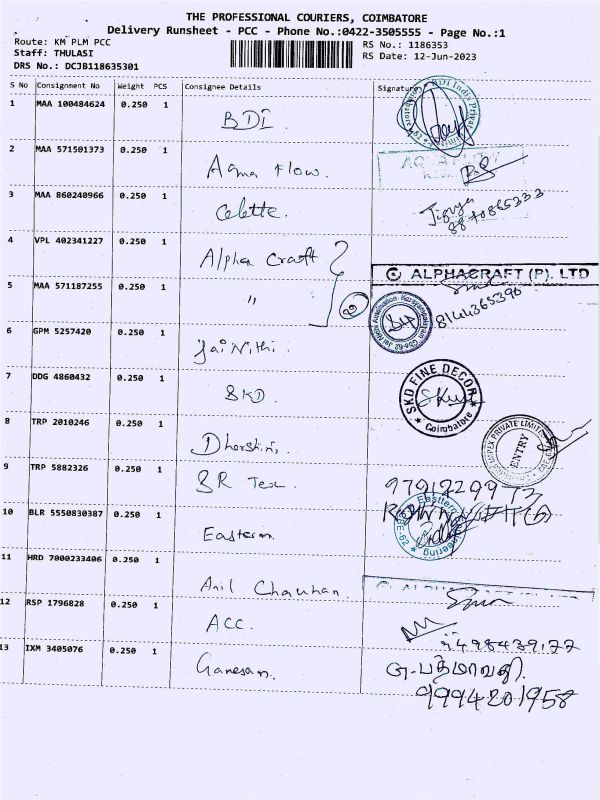 THE PROFESSIONAL COURIERS, COIMBATORE
Delivery Runsheet - PCC - Phone No.:0422-3505555 - Page No.:1
Route: KM PLM PCC
Staff: THULASI
DRS No.: DCJB118635301
RS No.: 1186353
RS Date: 12-Jun-2023
S No Consignment No Weight PCS Consignee Details Signature
1 MAA 100484624 0.250 1 BDI.
BDI India Private
Coimbatore
2 MAA 571501373 0.250 1 Aqua Flow.
3 MAA 860240966 0.250 1 Celette.
4 VPL 402341227 0.250 1 Alpha Craft
ALPHACRAFT (P). LTD
5 MAA 571187255 0.250 1 "
2
8144365396
6 GPM 5257420 0.250 1 Jai Nithi.
7 DDG 4860432 0.250 1 SKD.
SKD FINE DECOR
Coimbatore
8 TRP 2010246 0.250 1 Dharshini,
PRIVATE LIMITED
ENTRY
9 TRP 5882326 0.250 1 SR Tex
10 BLR 5550830387 0.250 1 Eastern.
Engineering
11 HRD 7000233406 0.250 1 Anil Chauhan
12 RSP 1796828 0.250 1 ACC.
13 IXM 3405076 0.250 1 Ganesan.
பத்மாவதி.
9994201958